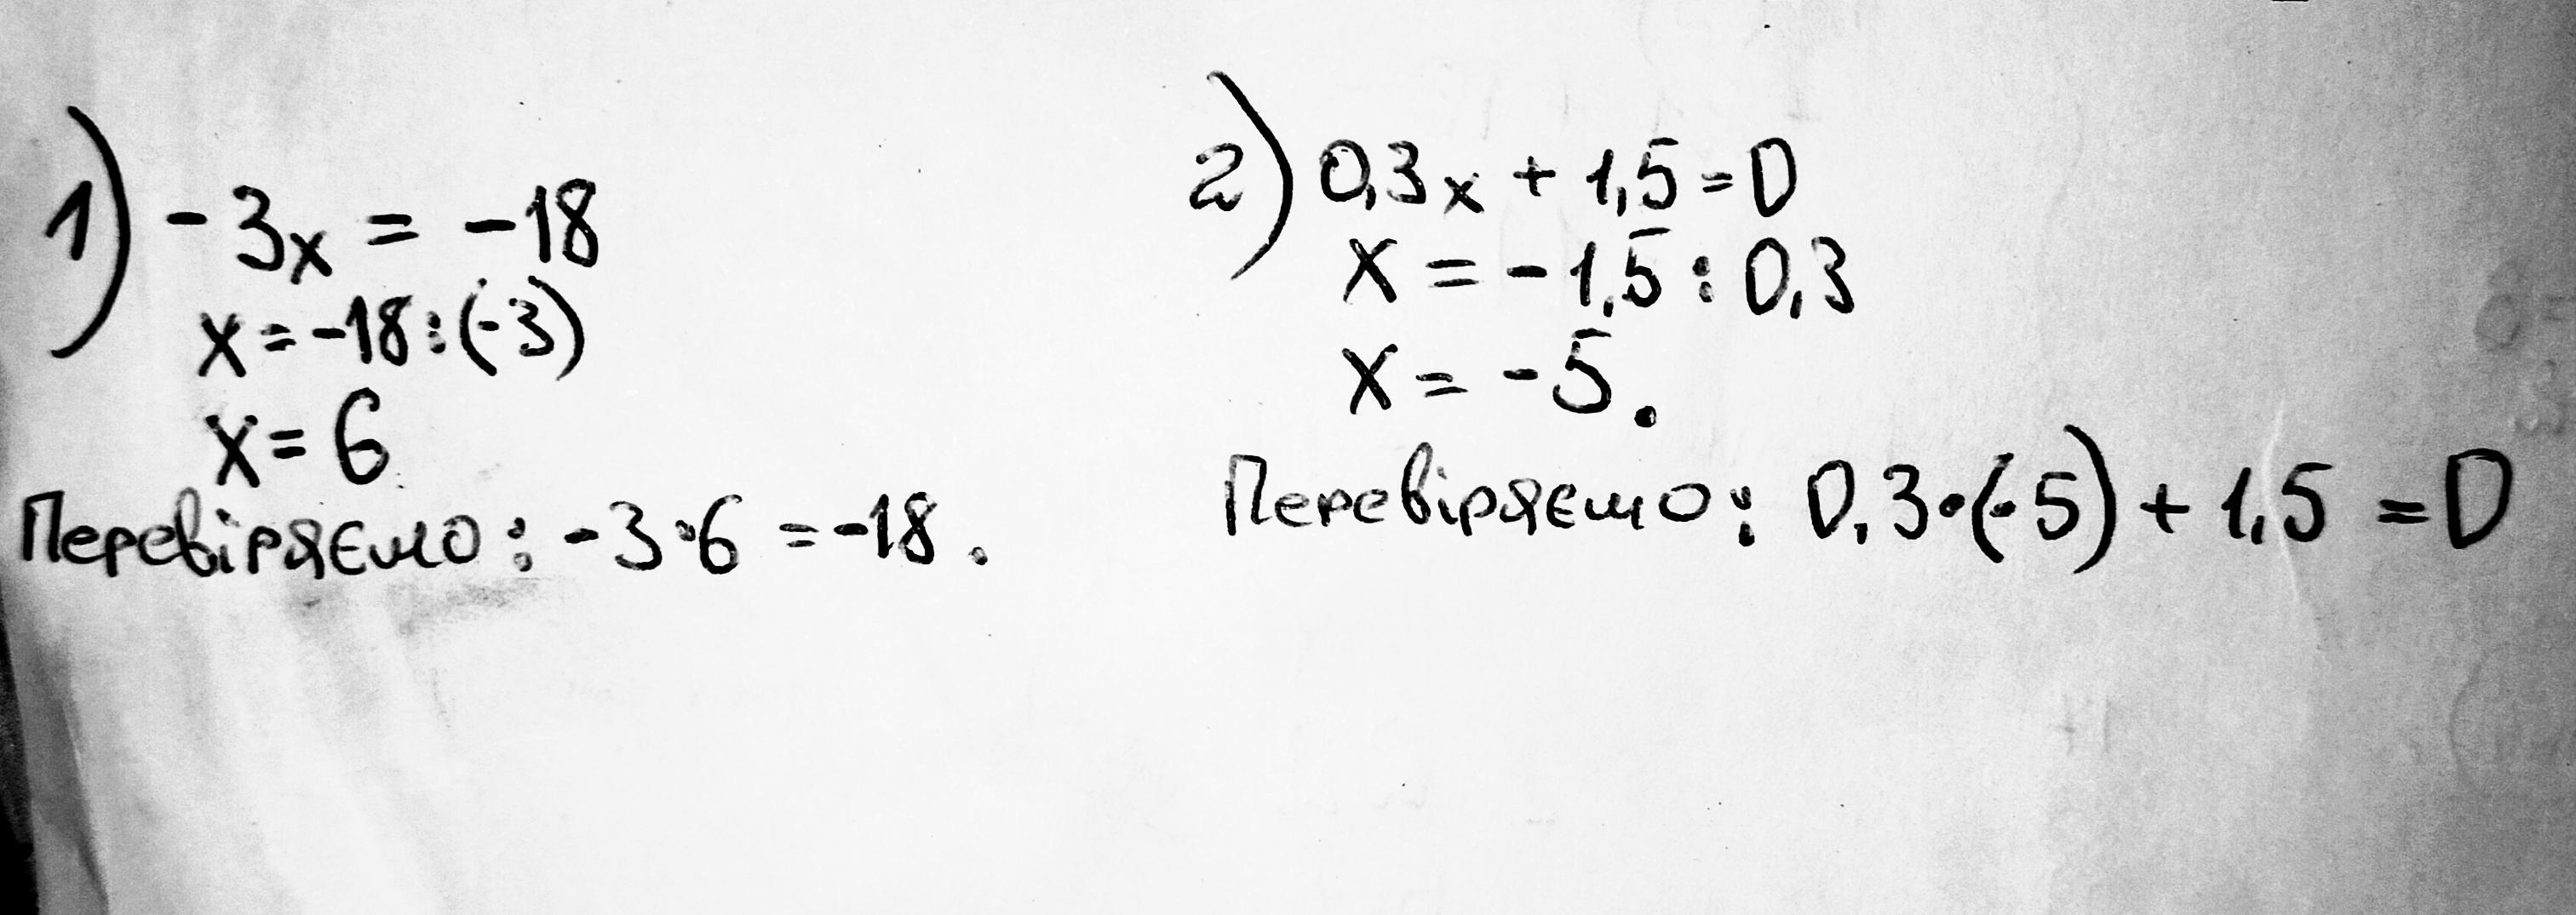 1) -3x = -18
x = -18 : (-3)
x = 6
Перевіряємо : -3·6 = -18.
2) 0,3x + 1,5 = 0
x = -1,5 : 0,3
x = -5.
Перевіряємо : 0,3·(-5) + 1,5 = 0